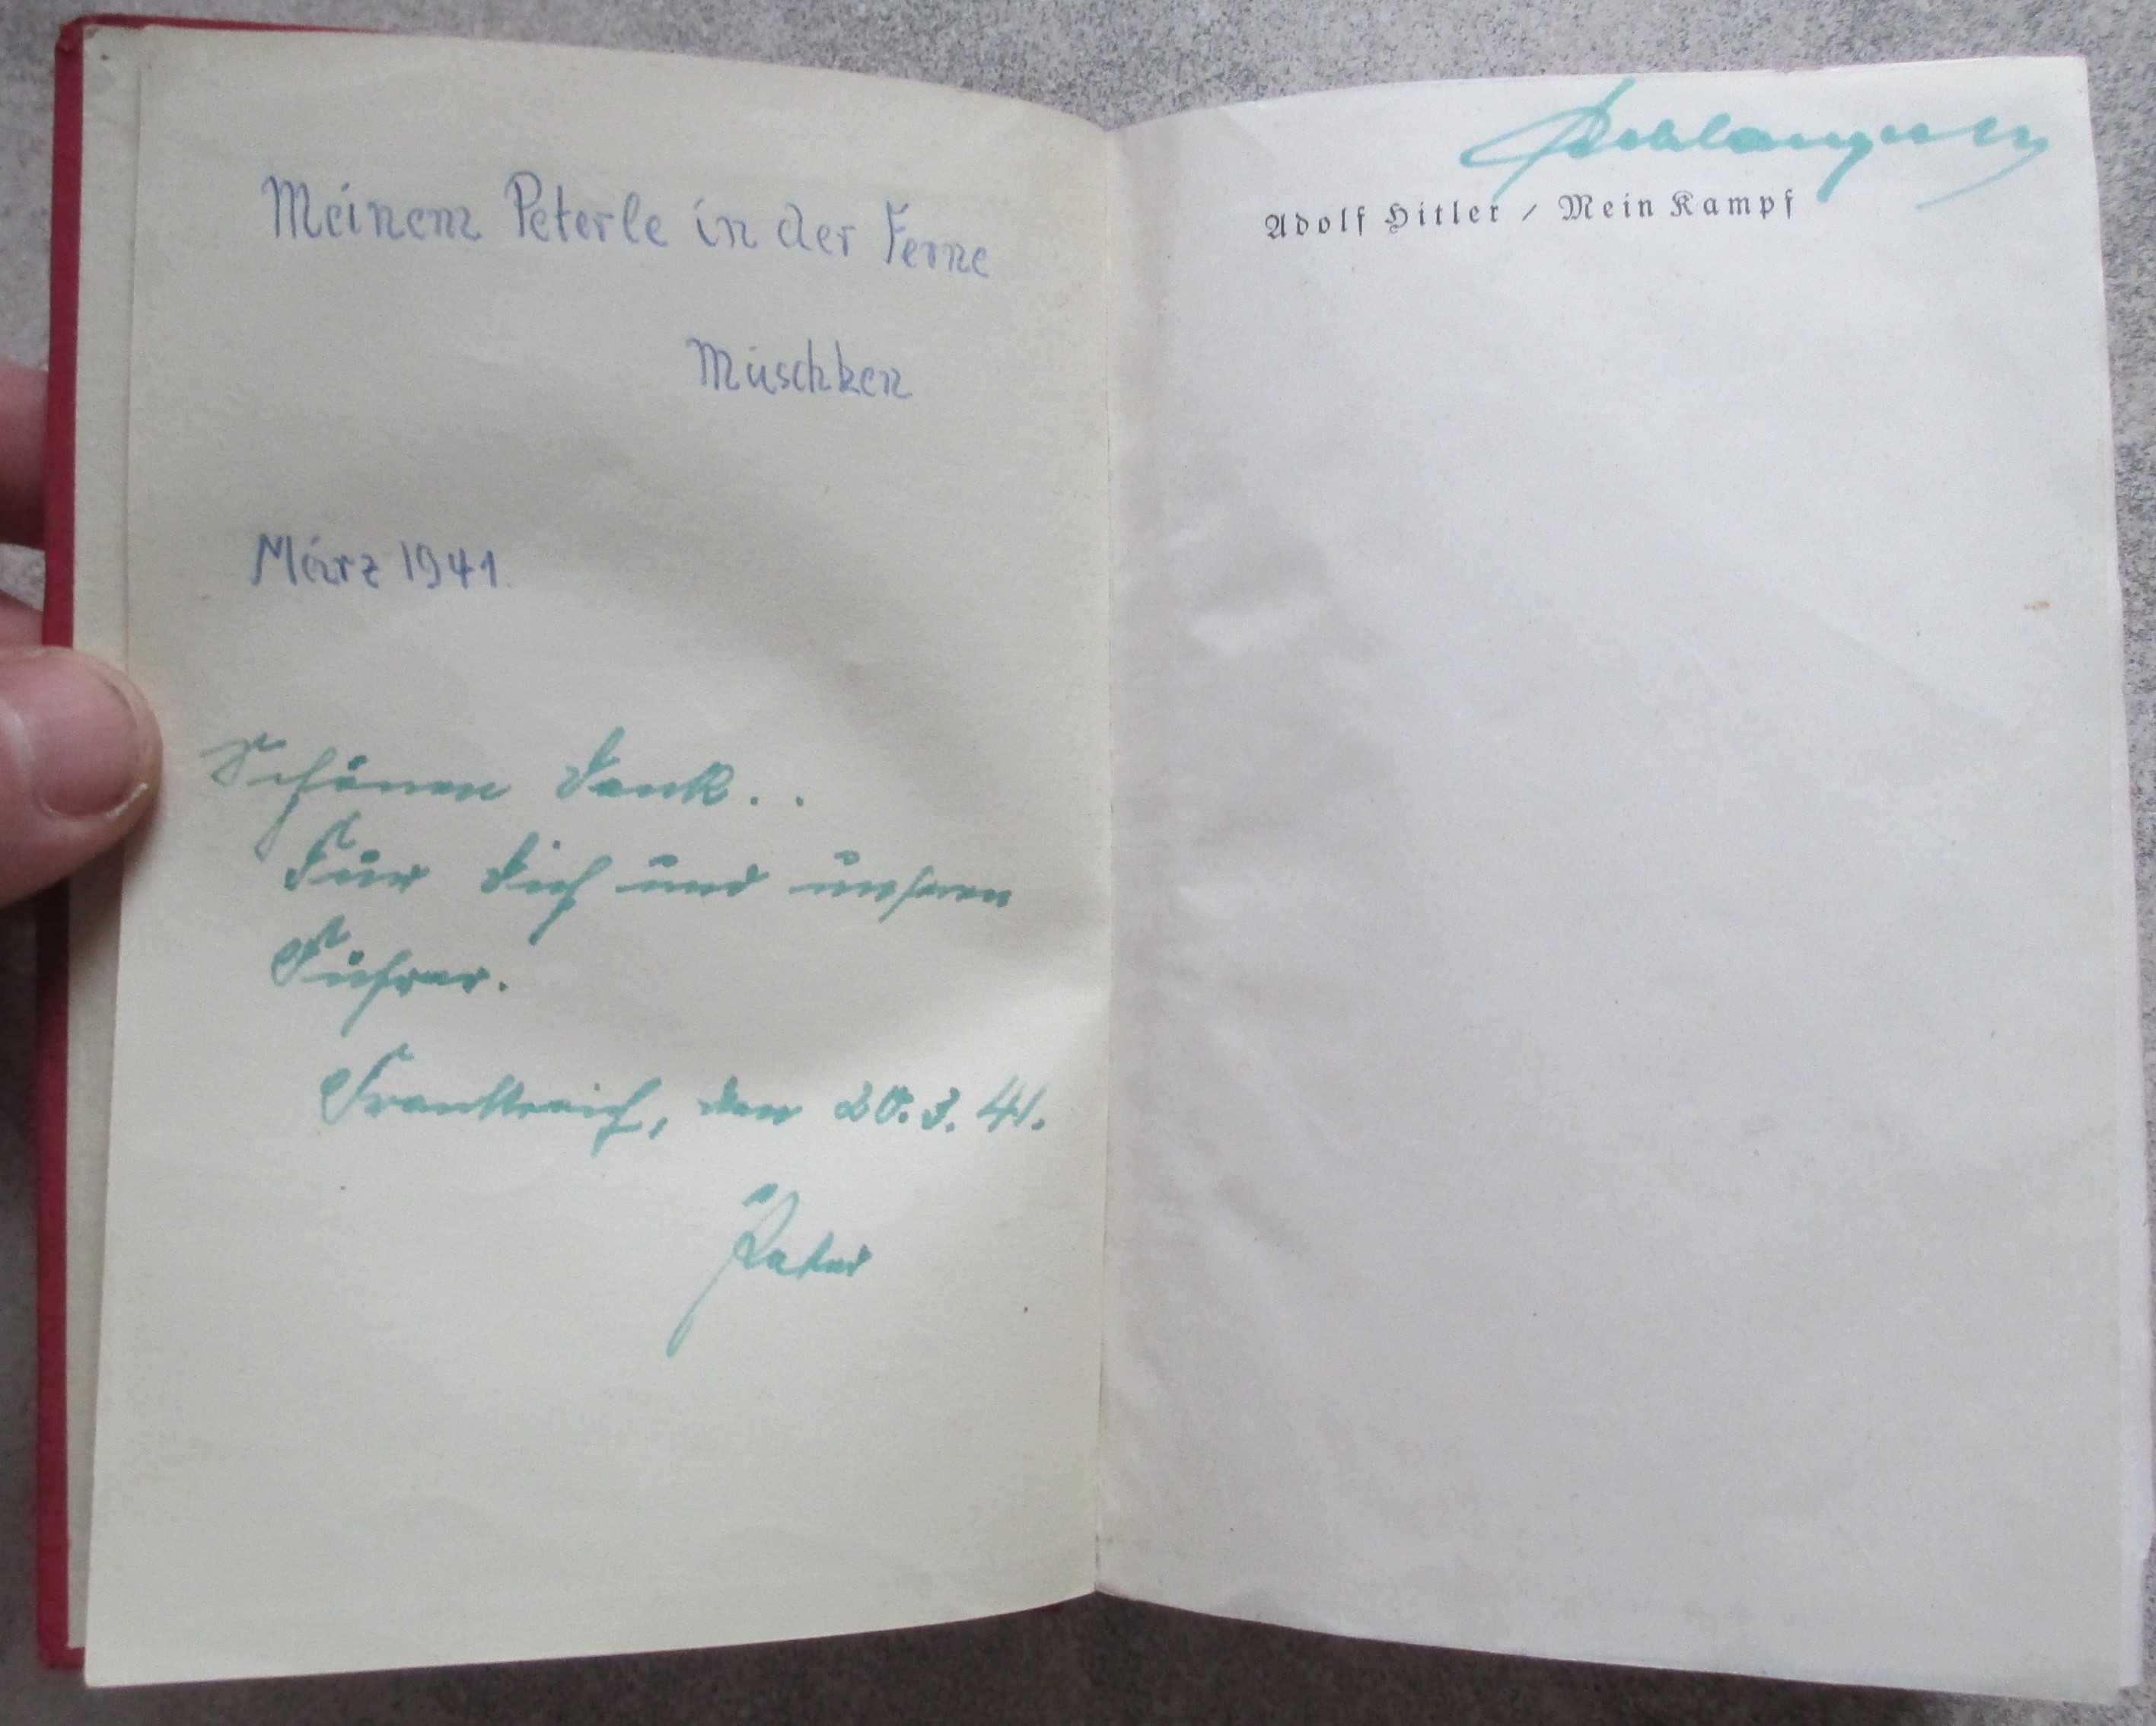 Meinem Peterle in der Ferne
Muschken
März 1941.
Schönen Dank..
Für Dich und unseren
Führer.
Frankreich, den 20.3.41.
Peter
Adolf Hitler / Mein Kampf